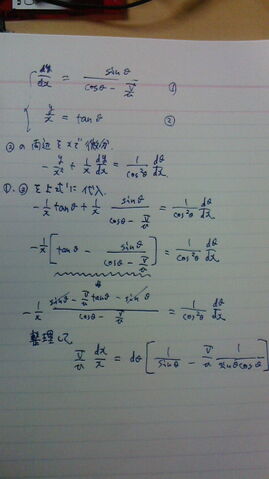 dy/dx = sinθ / (cosθ - V/v) ①
y/x = tanθ ②
②の両辺をxで微分.
- y/x² + 1/x dy/dx = 1/cos²θ dθ/dx
①,②を上式に代入
- 1/x tanθ + 1/x sinθ / (cosθ - V/v) = 1/cos²θ dθ/dx
- 1/x [ tanθ - sinθ / (cosθ - V/v) ] = 1/cos²θ dθ/dx
- 1/x (sinθ - V/v tanθ - sinθ) / (cosθ - V/v) = 1/cos²θ dθ/dx
整理して
V/v dx/x = dθ [ 1/sinθ - V/v 1/(sinθcosθ) ]